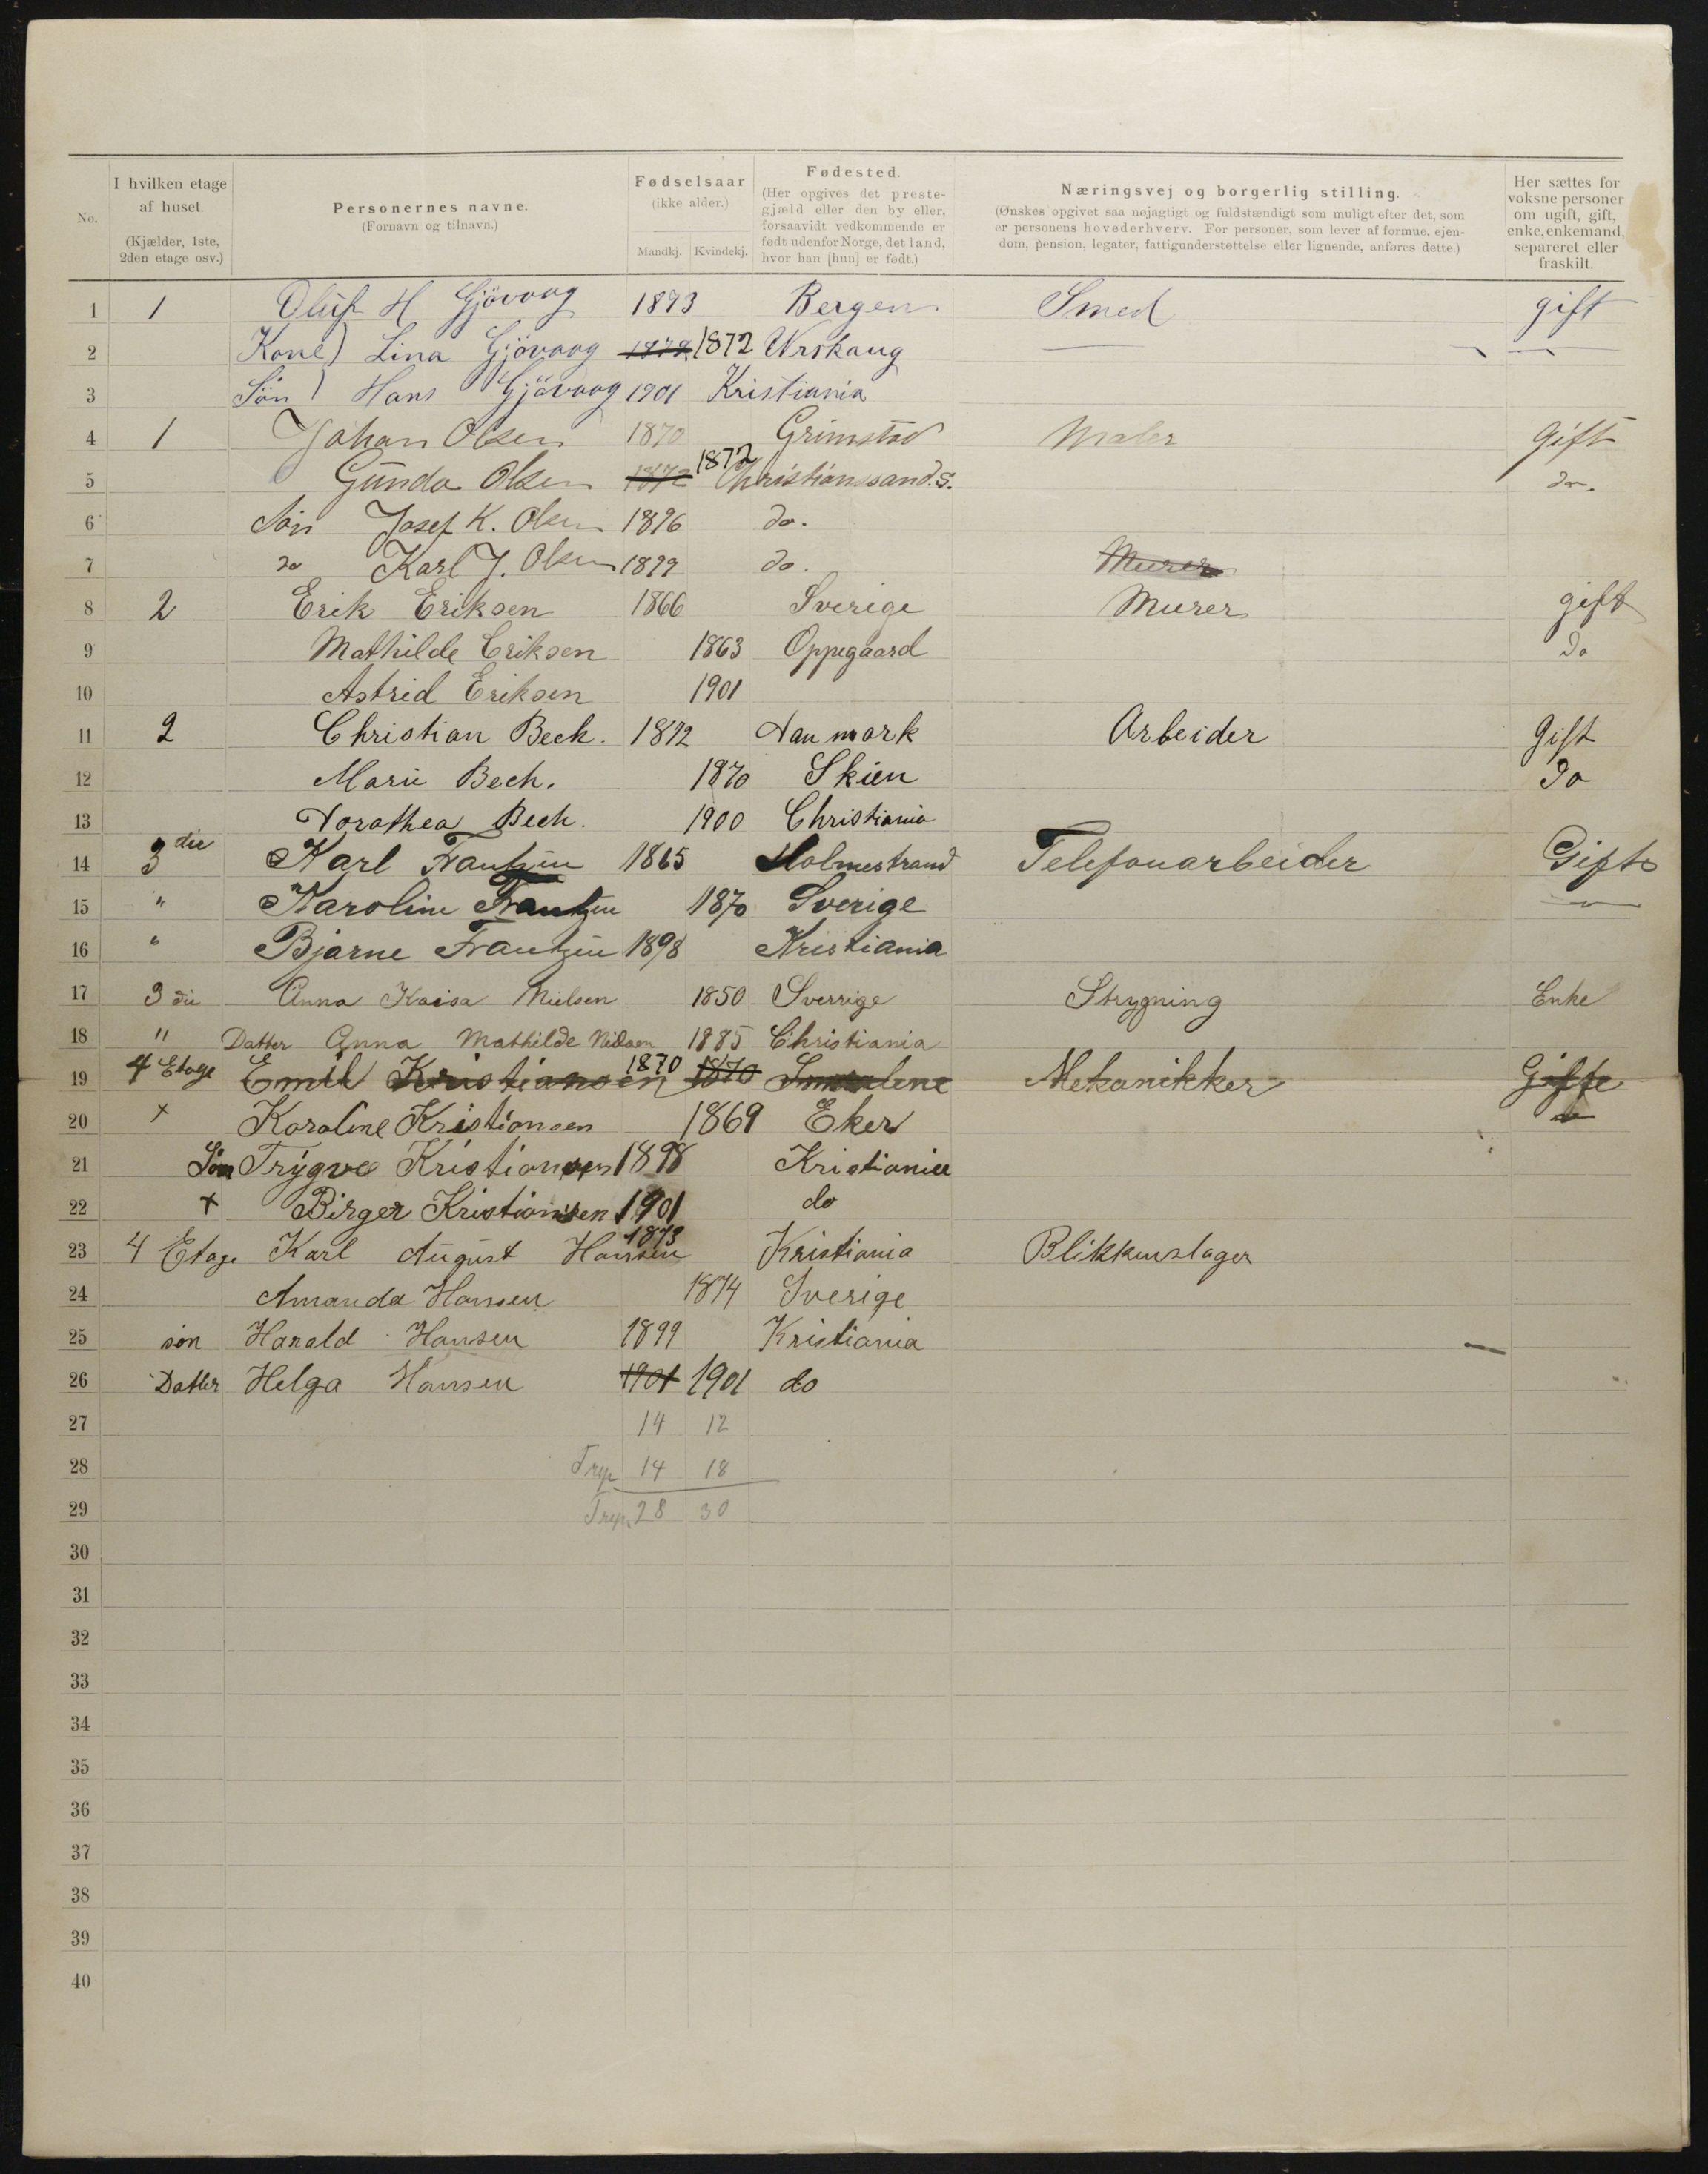 No.
I hvilken etage af huset. (Kjælder, 1ste, 2den etage osv.)
Personernes navne. (Fornavn og tilnavn.)
Fødselsaar (ikke alder.) Mandkj. Kvindekj.
Fødested. (Her opgives det prestegjæld eller den by eller, forsaavidt vedkommende er født udenfor Norge, det land, hvor han [hun] er født.)
Næringsvej og borgerlig stilling. (Ønskes opgivet saa nøjagtigt og fuldstændigt som muligt efter det, som er personens hovederhverv. For personer, som lever af formue, ejendom, pension, legater, fattigunderstøttelse eller lignende, anføres dette.)
Her sættes for voksne personer om ugift, gift, enke, enkemand, separeret eller fraskilt.
1 1 Oluf H Gjövaag 1873 Bergen Smed gift
2 Kone) Lina Gjövaag 1872 1872 Urskaug
3 Sön) Hans Gjövaag 1901 Kristiania
4 1 Johan Olsen 1870 Grimstad Maler Gift
5 Gunda Olsen 1872 1872 Christianssand.S. do.
6 Sön Josef K. Olsen 1896 do.
7 do Karl J. Olsen 1899 do. Murer
8 2 Erik Eriksen 1866 Sverige Murer gift
9 Mathilde Eriksen 1863 Oppegaard do
10 Astrid Eriksen 1901
11 2 Christian Beck. 1872 Danmark Arbeider Gift
12 Marie Bech. 1870 Skien do
13 Dorathea Bech. 1900 Christiania
14 3die Karl Frantzen 1865 Holmestrand Telefonarbeider Gifte
15 " Karoline Frantzen 1870 Sverige
16 " Bjarne Frantzen 1898 Kristiania
17 3die Anna Kaisa Nielsen 1850 Sverrige Strygning Enke
18 " Datter Anna Mathilde Nielsen 1885 Christiania
19 4 Etage Emil Kristiansen 1870 1870 Smaalene Mekanikker Gifte
20 + Karoline Kristiansen 1869 Eker
21 Søn Trygve Kristiansen 1898 Kristiania
22 + Birger Kristiansen 1901 do
23 4 Etage Karl August Hansen 1873 Kristiania Blikkenslager
24 Amanda Hansen 1874 Sverige
25 søn Harald Hansen 1899 Kristiania
26 Datter Helga Hansen 1901 1901 do
27 14 12
28 14 18
29 28 30
30
31
32
33
34
35
36
37
38
39
40